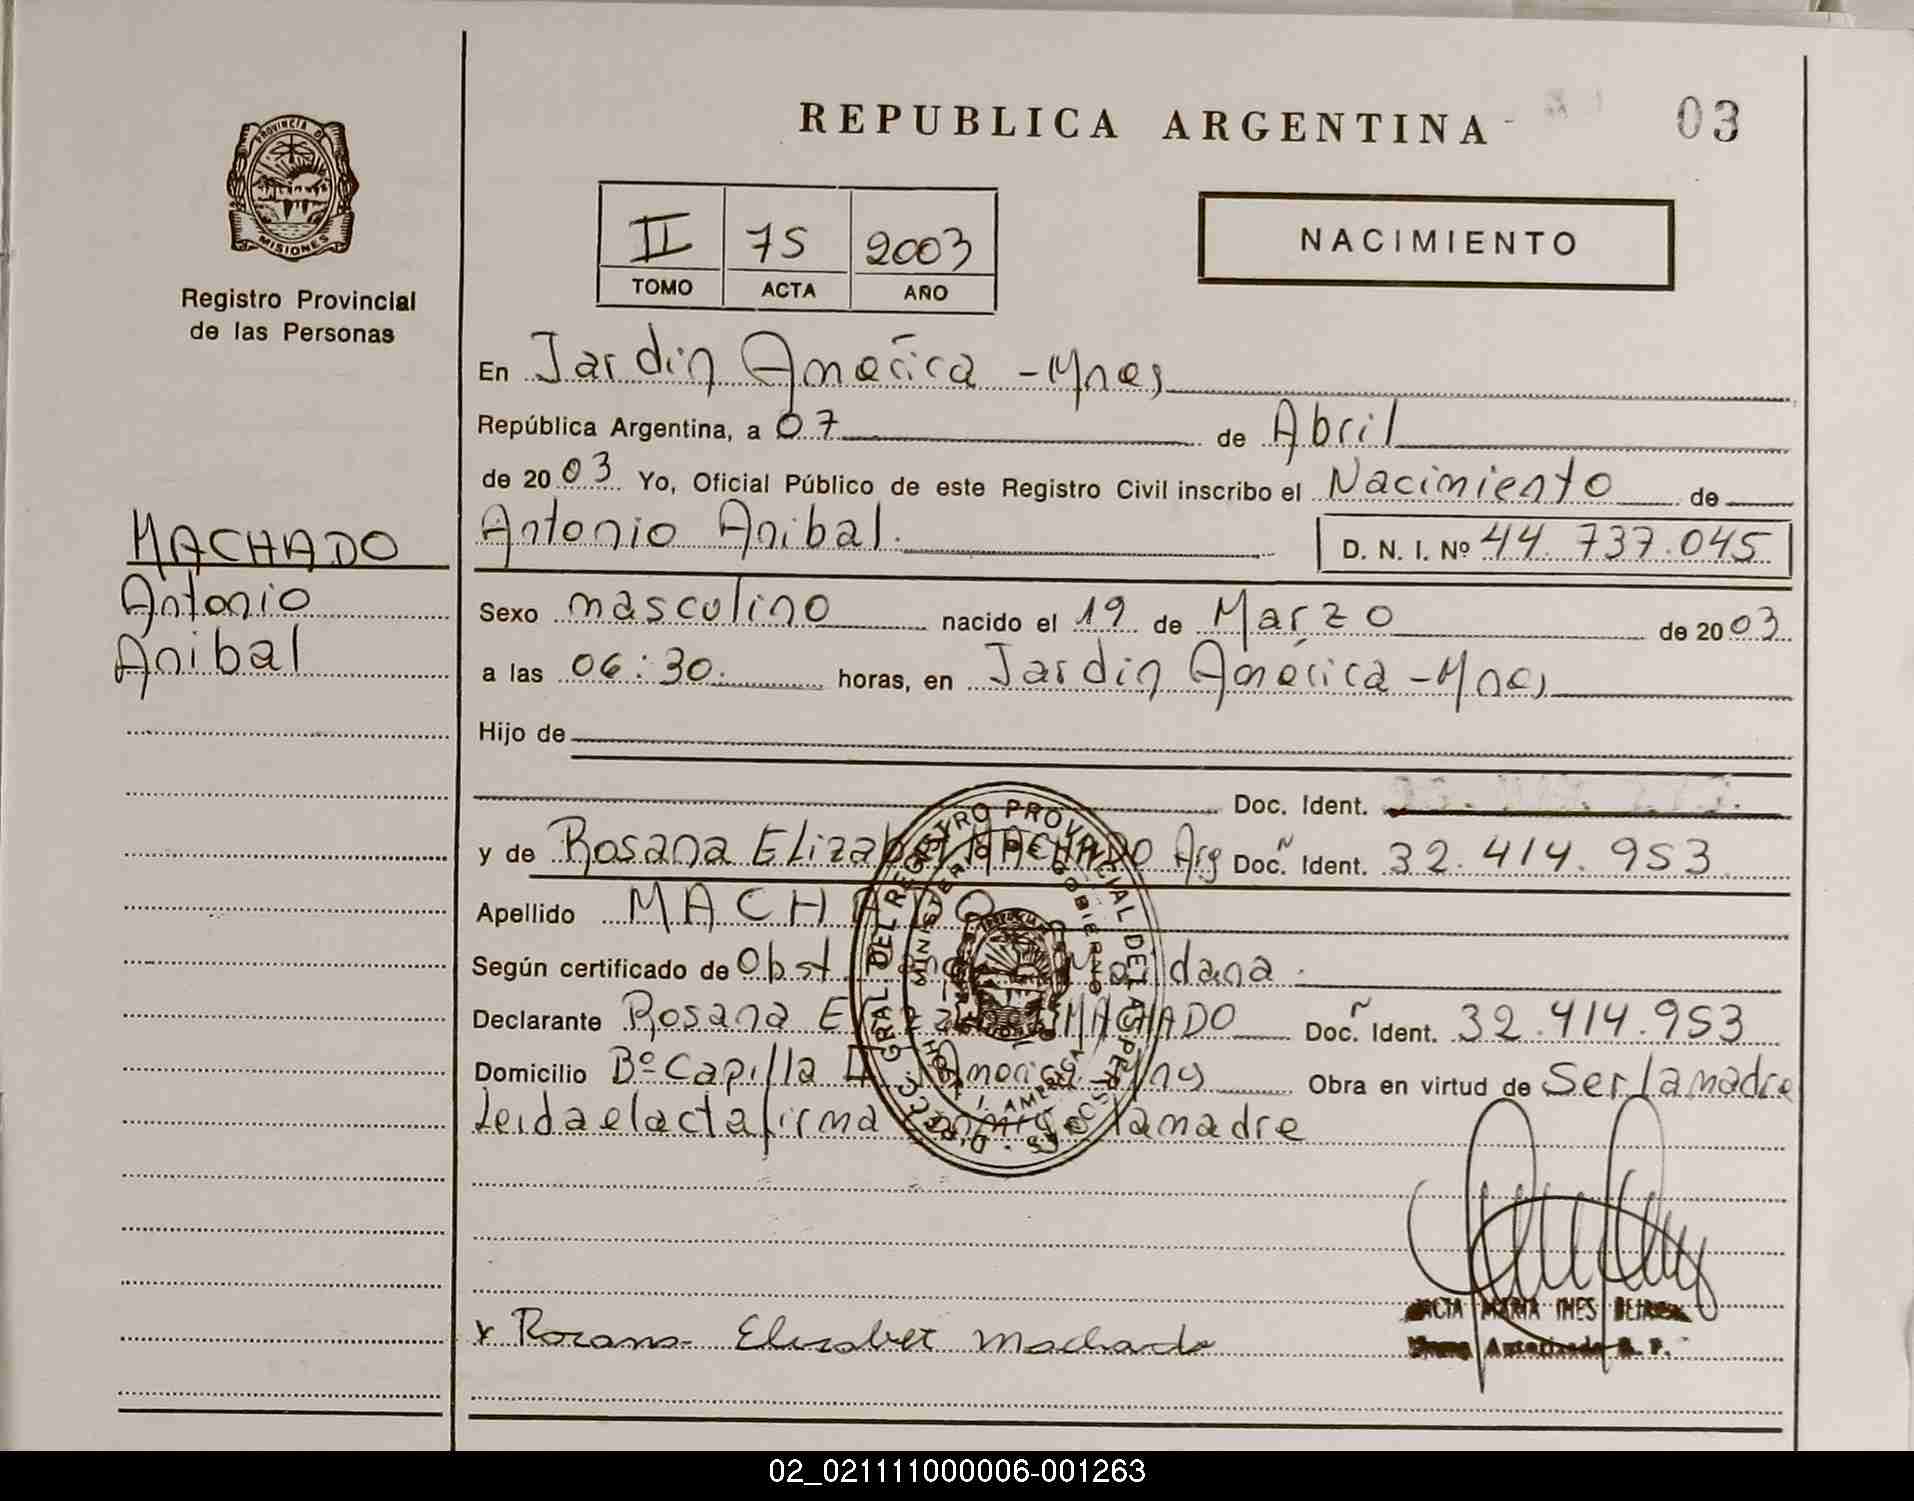 REPUBLICA ARGENTINA
03
PROVINCIA D
MISIONES
Registro Provincial
de las Personas
II 75 2003
TOMO ACTA AÑO
NACIMIENTO
En Jardin América - Mnes
República Argentina, a 07 de Abril
de 2003 Yo, Oficial Público de este Registro Civil inscribo el Nacimiento de
Antonio Anibal.
D. N. I. Nº 44.737.045
MACHADO
Antonio
Anibal
Sexo masculino nacido el 19 de Marzo de 2003
a las 06:30. horas, en Jardin América - Mnes
Hijo de
Doc. Ident.
y de Rosana Elizabet MACHADO Arg Doc. Ident. 32.414.953
Apellido MACHADO
Según certificado de Obst. Maidana.
Declarante Rosana Elizabet MACHADO Doc. Ident. 32.414.953
Domicilio Bº Capilla América Mnes Obra en virtud de Ser la madre
Leida el acta firma la madre
DIRECC. GRAL DEL REGISTRO PROVINCIAL DE LAS PERSONAS
MINISTERIO DE GOBIERNO
x Rosana Elizabet Machado
MARIA INES
Autorizada R. P.
02_021111000006-001263